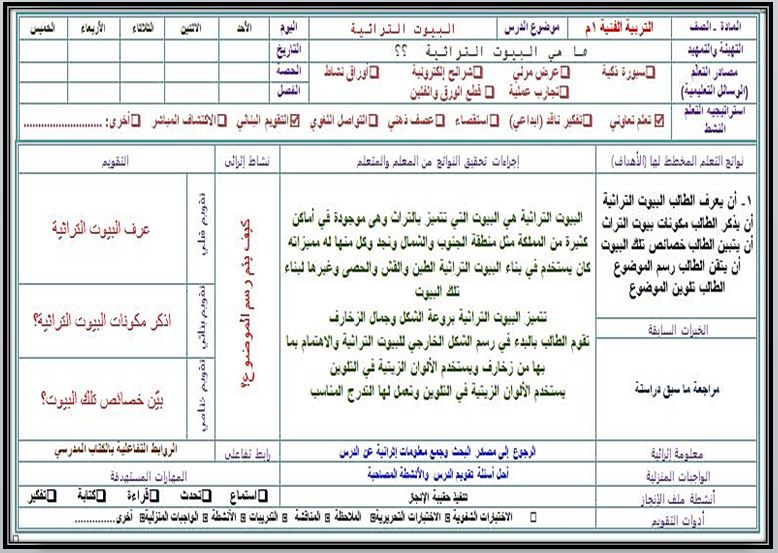 المادة ـ الصف التربية الفنية ١م موضوع الدرس البيوت التراثية اليوم الأحد الاثنين الثلاثاء الأربعاء الخميس
التهيئة والتمهيد ما هي البيوت التراثية ؟؟ التاريخ
مصادر التعلم سبورة ذكية عرض مرئي شرائح إلكترونية أوراق نشاط الحصة
(الوسائل التعليمية) تجارب عملية قطع الورق والفلين الفصل
استراتيجيه التعلم النشط تعلم تعاوني تفكير ناقد (ابداعي) استقصاء عصف ذهني التواصل اللغوي التقويم البنائي الاكتشاف المباشر أخرى: ..........................
نواتج التعلم المخطط لها (الأهداف) إجراءات تحقيق النواتج من المعلم والمتعلم نشاط إثرائي التقويم
١ـ أن يعرف الطالب البيوت التراثية
أن يذكر الطالب مكونات بيوت التراث
أن يتبين الطالب خصائص تلك البيوت
أن يتقن الطالب رسم الموضوع
الطالب تلوين الموضوع
الخبرات السابقة
مراجعة ما سبق دراستة
البيوت التراثية هي البيوت التي تتميز بالتراث وهى موجودة في أماكن
كثيرة من المملكة مثل منطقة الجنوب والشمال ونجد وكل منها له مميزاته
كان يستخدم في بناء البيوت التراثية الطين والقش والحصى وغيرها لبناء
تلك البيوت
تتميز البيوت التراثية بروعة الشكل وجمال الزخارف
تقوم الطالب بالبدء في رسم الشكل الخارجي للبيوت التراثية والاهتمام بما
بها من زخارف ويستخدم الألوان الزيتية في التلوين
يستخدم الألوان الزيتية في التلوين وتعمل لها التدرج المناسب
كيف يتم رسم الموضوع؟
تقويم قبلي
عرف البيوت التراثية
تقويم بنائي
اذكر مكونات البيوت التراثية؟
تقويم ختامي
بيّن خصائص تلك البيوت؟
معلومة إثرائية الرجوع إلى مصادر البحث وجمع معلومات إثرائية عن الدرس رابط تفاعلي الروابط التفاعلية بالكتاب المدرسي
الواجبات المنزلية أحل أسئلة تقويم الدرس والأنشطة المصاحبة المهارات المستهدفة
أنشطة ملف الإنجاز تنفيذ حقيبة الإنجاز استماع تحدث قراءة كتابة تفكير
أدوات التقويم الاختبارات الشفوية الاختبارات التحريرية الملاحظة المناقشة التدريبات الأنشطة الواجبات المنزلية أخرى...............